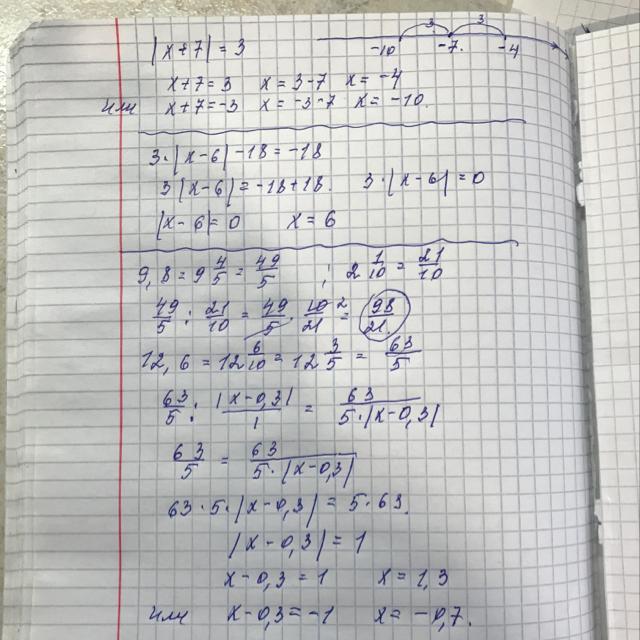 |x+7|=3
3 3
-10 -7. -4
x+7=3 x=3-7 x=-4
или x+7=-3 x=-3-7 x=-10.
3·|x-6|-18=-18
3|x-6|=-18+18. 3·|x-6|=0
|x-6|=0 x=6
9,8=9 4/5=49/5 ; 2 1/10=21/10
49/5 : 21/10 = 49/5 · 10/21 2 = 98/21
12,6=12 6/10=12 3/5=63/5
63/5 : |x-0,3|/1 = 63/5·|x-0,3|
63/5 = 63/5·|x-0,3|
63·5·|x-0,3|=5·63.
|x-0,3|=1
x-0,3=1 x=1,3
или x-0,3=-1 x=-0,7.